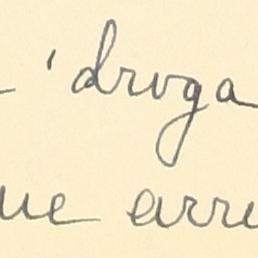 'droga
ue arre